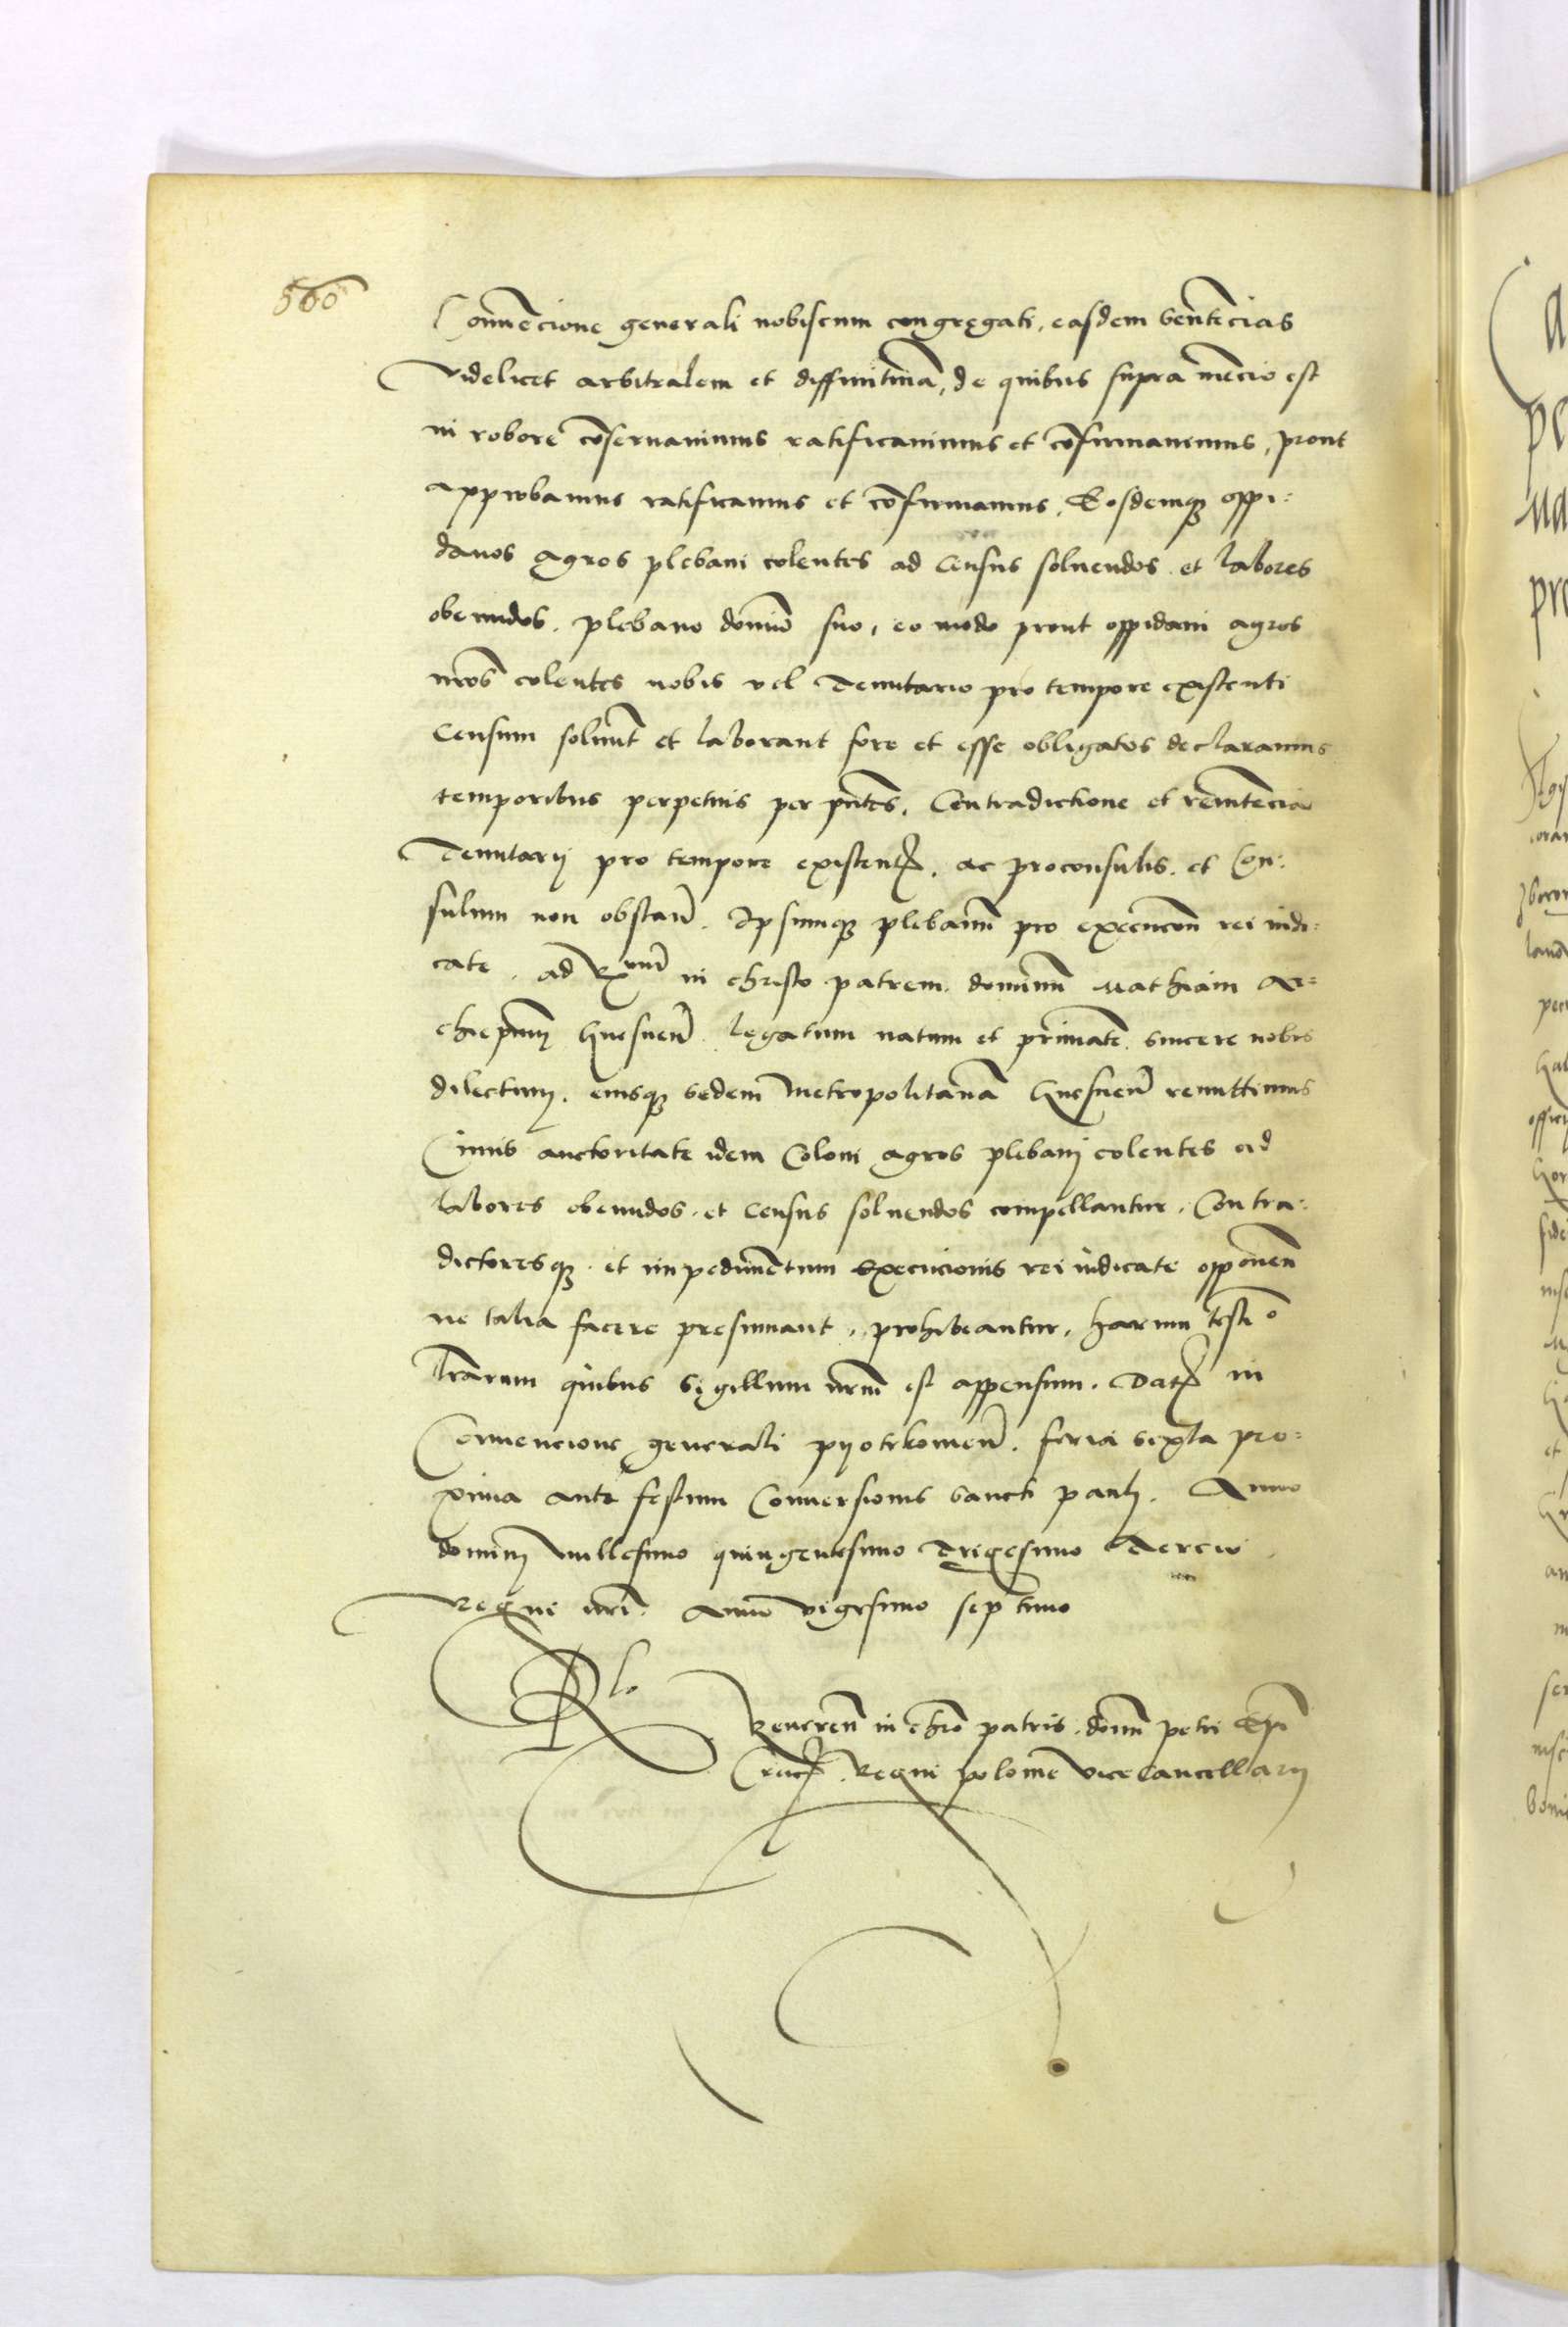 560
Conuēcione generali nobiscum congregati, easdem sentēcias
videlicet arbitralem et diffinitiuā, de quibus supra mēcio est
in robore cōseruauimus ratificauimus et cōfirmauimus, prout
approbamus ratificamus et cōfirmamus. Eosdemq oppi:
danos agros plebani colentes ad Census soluendos et labores
obeundos. plebano domio suo, eo modo prout oppidani agros
nros colentes nobis vel Tenutario pro tempore existenti
Censum soluūt et laborant fore et esse obligatos declaramus
temporibus perpetuis per pntes. Contradictione et renitēcia
Tenutarij pro tempore existent. ac proconsulis. et Con:
sulum non obstan. Ipsumq plebanū pro execucion rei iudi:
cate. ad R in christo patrem. dominū Mathiam Ar=
chiepum Gnesnen. legatum natum et primatē. sincere nobis
dilectum. eiusq sedem Metropolitanā Gnesnen remittimus
Cuius auctoritate idem Coloni agros plebani colentes ad
labores obeundos. et Census soluendos compellantur. Contra:
dictoresq. et impedimētum Execucionis rei iudicate opponen
ne talia facere presumant, prohibeantur, harum testio
lrarum quibus Sigillum nrm est appensum. Dat in
Conuencione generali pyotrkouien. feria sexta pro:
xima ante festum Conuersionis Sancti pauli. Anno
domini Millesimo quingentesimo Trigesimo Tercio
Regni nri. Anno vigesimo septimo
Rlo
Reueren in chro patris. domi petri Epi
Crac. Regni polonie vicecancellarij